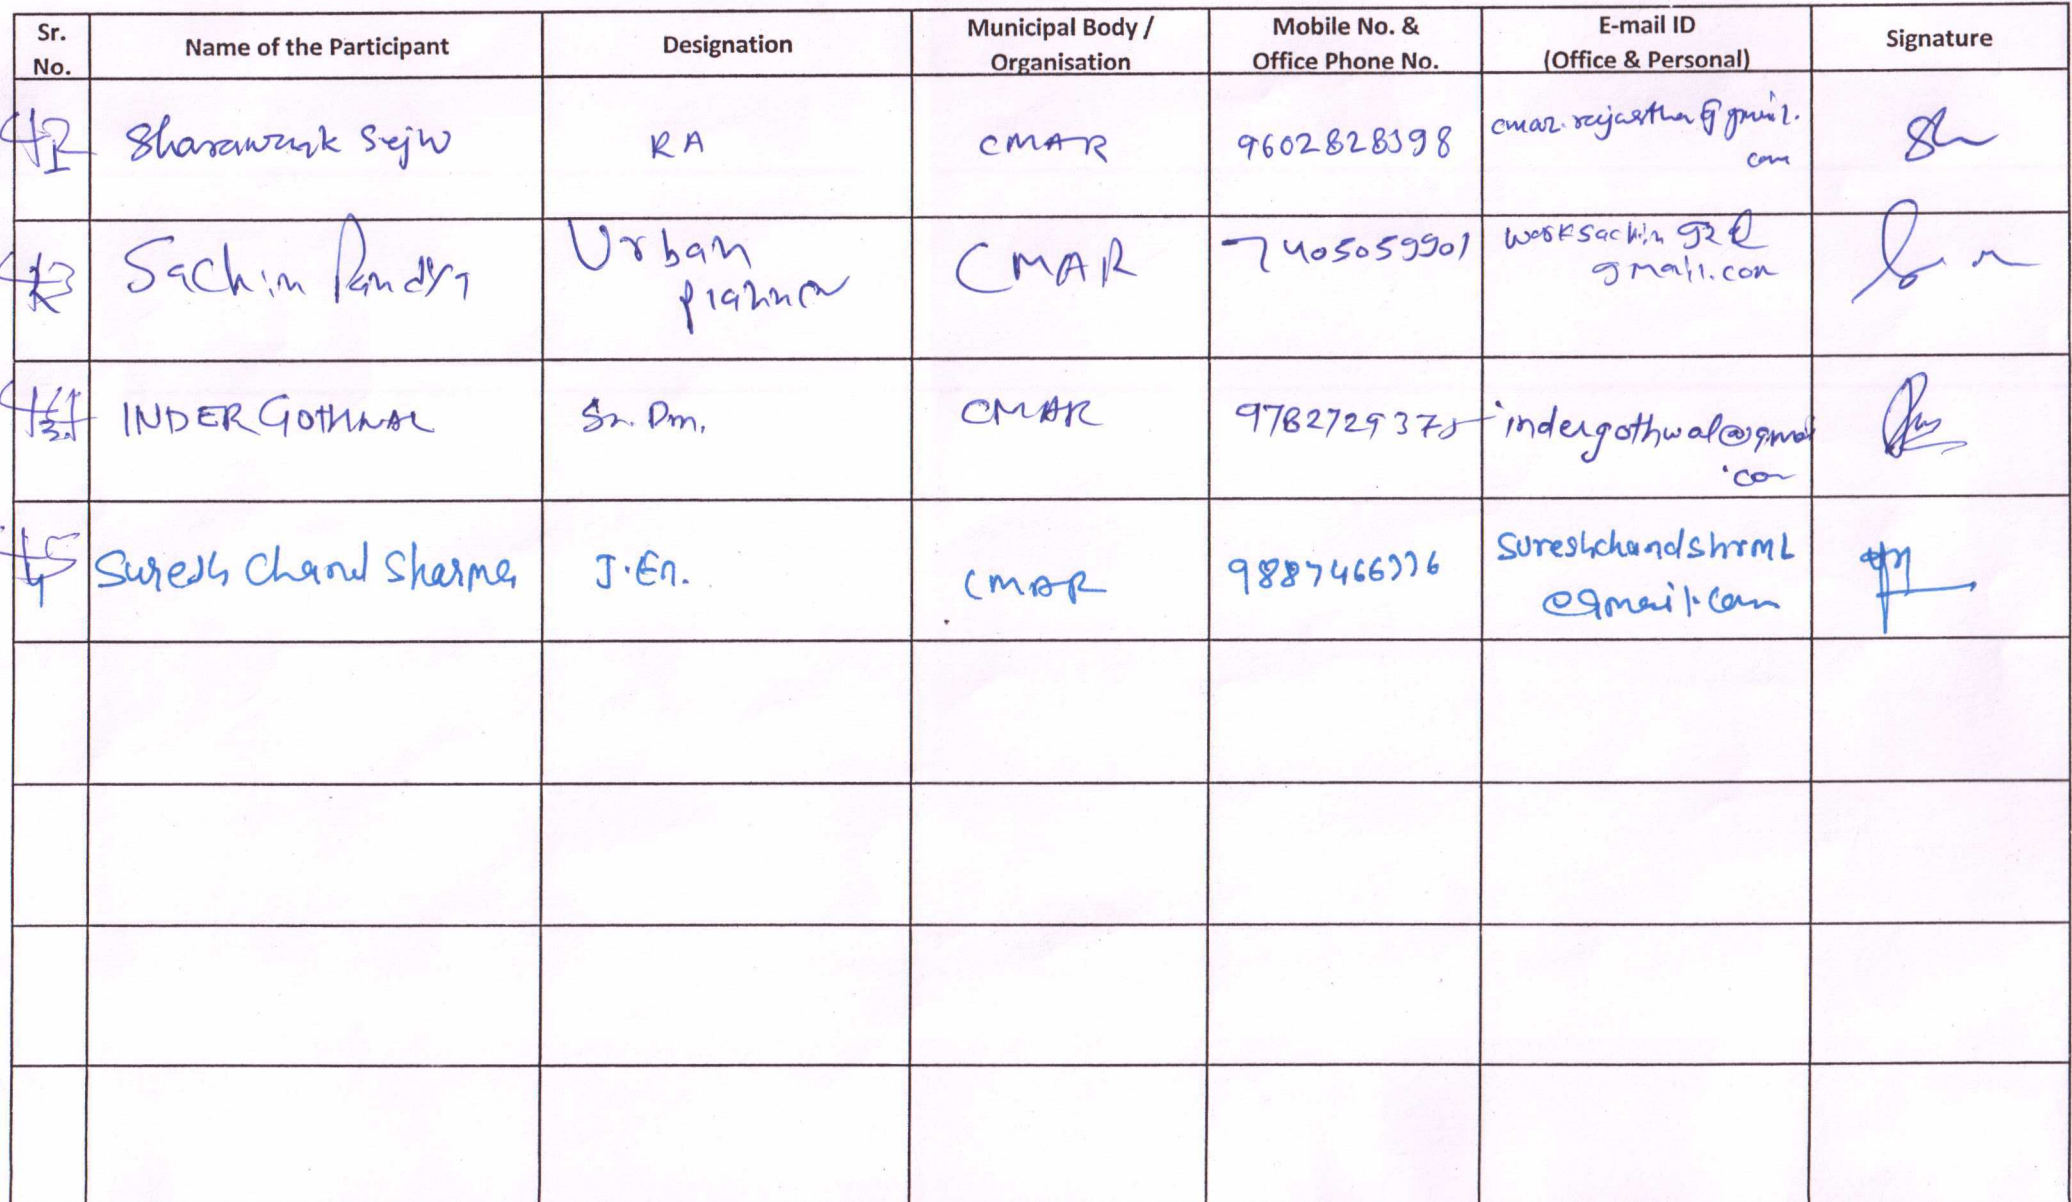 Sr. No.
Name of the Participant
Designation
Municipal Body / Organisation
Mobile No. & Office Phone No.
E-mail ID (Office & Personal)
Signature
42
RA
CMAR
9602828398
43
Sachin Pandya
Urban
planner
CMAR
7405059901
worksachin92@
gmail.com
44
INDER GOTHWAL
Sr. Dm.
CMAR
9782729375
indergothwal@gmai
.com
45
Suresh Chand Sharma
J.En.
CMAR
sureshchandshrm1
@gmail.com